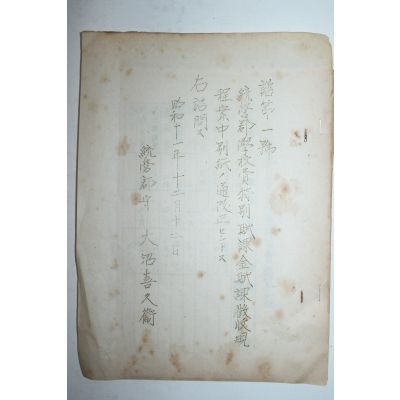 諮第一號
統營郡學校費特別賦課金賦課徴收規
程案中別紙ノ通改正セントス
右諮問ス
昭和十一年十二月十二日
統營郡守 大沼喜久衛